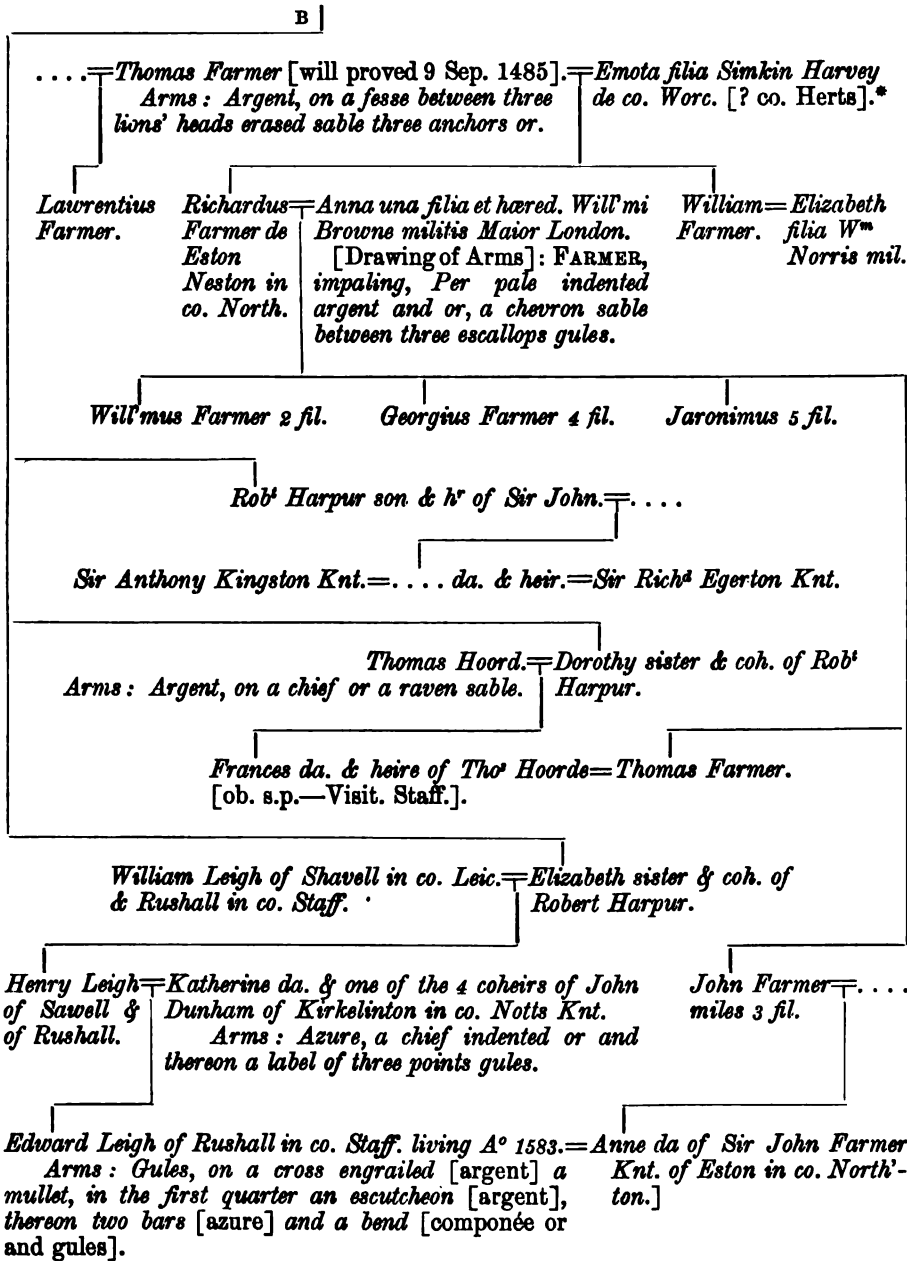 B
....=Thomas Farmer [will proved 9 Sep. 1485].=Emota filia Simkin Harvey
Arms: Argent, on a fesse between three
lions' heads erased sable three anchors or.
de co. Worc. [? co. Herts].*
Lawrentius
Farmer.
Richardus=
Farmer de
Eston
Neston in
co. North.
Anna una filia et hæred. Will'mi
Browne militis Maior London.
[Drawing of Arms]: FARMER,
impaling, Per pale indented
argent and or, a chevron sable
between three escallops gules.
William=
Farmer.
Elizabeth
filia Wᵐ
Norris mil.
Will'mus Farmer 2 fil.
Georgius Farmer 4 fil.
Jaronimus 5 fil.
Robᵗ Harpur son & hʳ of Sir John.=....
Sir Anthony Kingston Knt.=.... da. & heir.=Sir Richᵈ Egerton Knt.
Thomas Hoord.=Dorothy sister & coh. of Robᵗ
Arms: Argent, on a chief or a raven sable.
Harpur.
Frances da. & heire of Thoˢ Hoorde=Thomas Farmer.
[ob. s.p.—Visit. Staff.].
William Leigh of Shavell in co. Leic.=Elizabeth sister & coh. of
& Rushall in co. Staff.
Robert Harpur.
Henry Leigh=
of Sawell &
of Rushall.
Katherine da. & one of the 4 coheirs of John
Dunham of Kirkelinton in co. Notts Knt.
Arms: Azure, a chief indented or and
thereon a label of three points gules.
John Farmer=....
miles 3 fil.
Edward Leigh of Rushall in co. Staff. living Aº 1583.=
Arms: Gules, on a cross engrailed [argent] a
mullet, in the first quarter an escutcheon [argent],
thereon two bars [azure] and a bend [componée or
and gules].
Anne da of Sir John Farmer
Knt. of Eston in co. North'-
ton.]